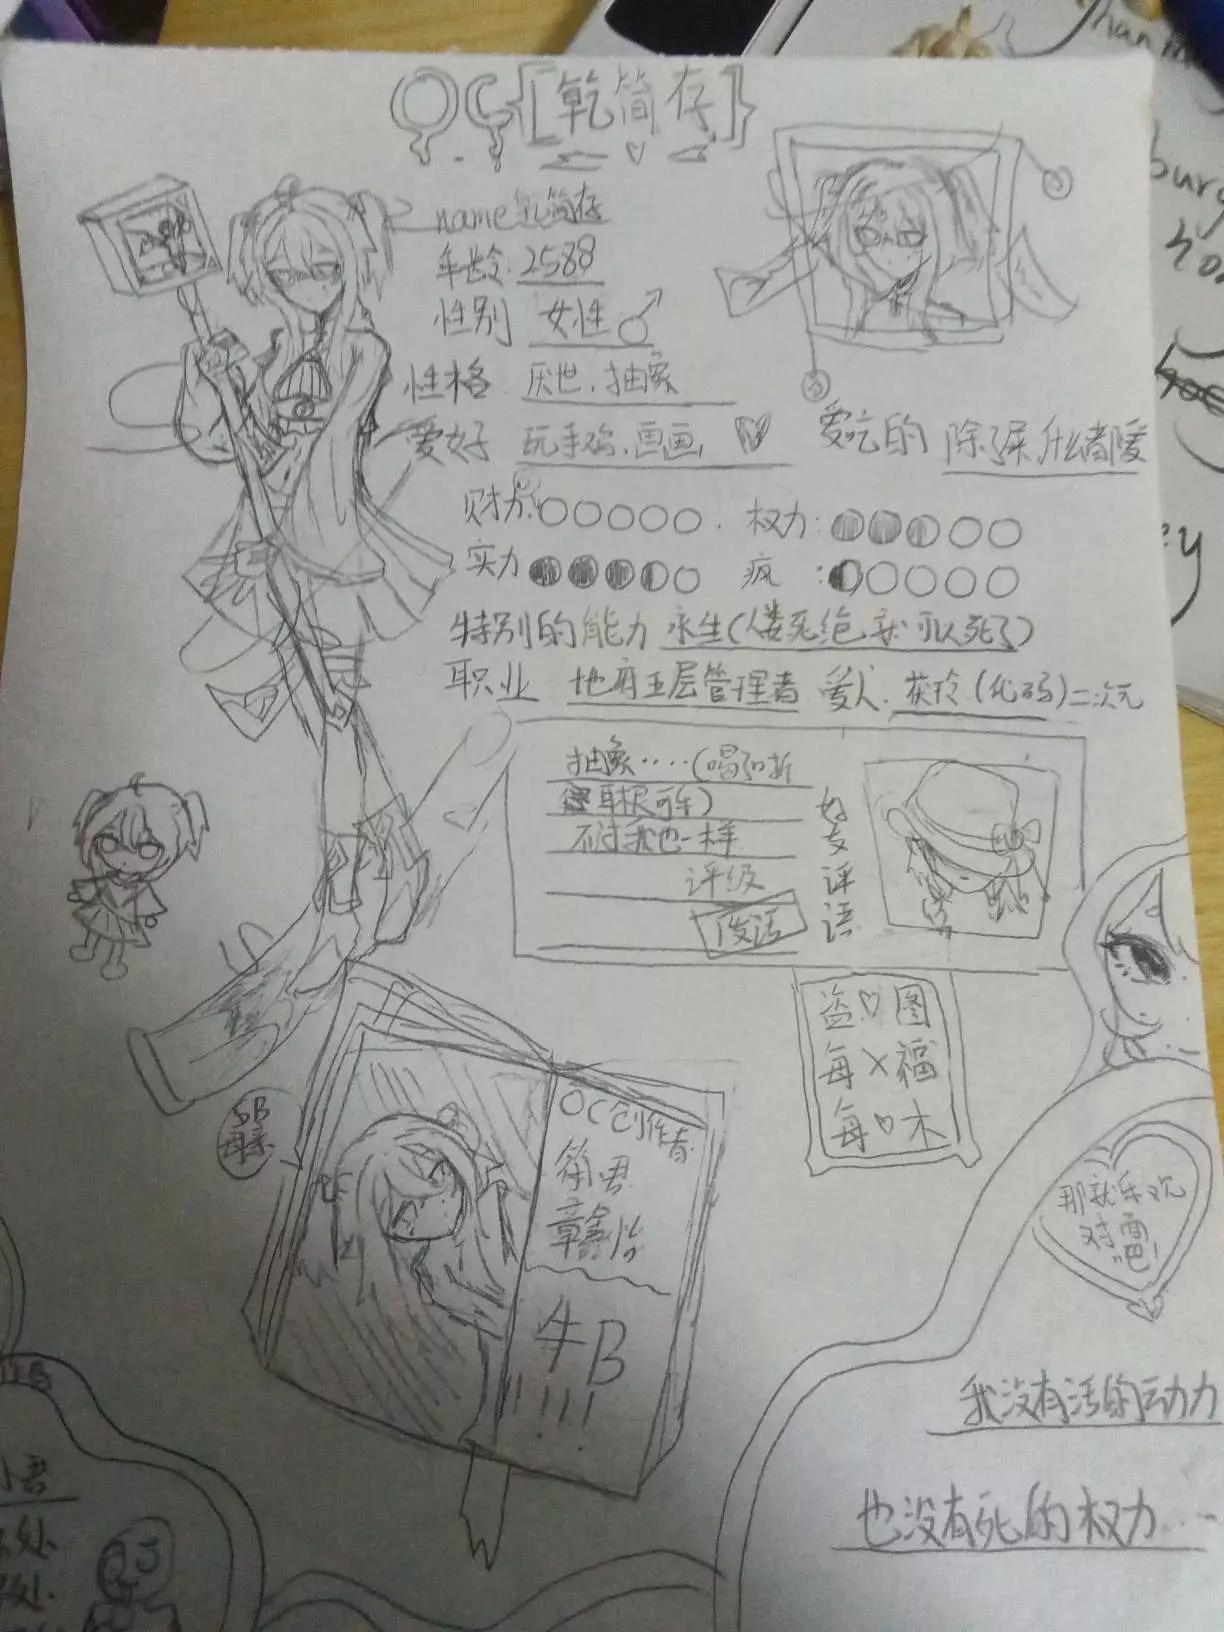 OC{[乾简存]}
name 乾简存
年龄. 2588
性别 女性♂
性格 厌世、抽象
爱好 玩手鸡、画画
爱吃的 除了屎,什么都爱
财力:○○○○○. 权力:
实力 疯 :
特别的能力 永生(人类死绝 我可以死了)
职业 地府五层管理者 爱人. 茯玲(代码)二次元
抽象····(喝
耳根
不过我也一样
评级
废活
好友评语
盗♡图
每×福
每♡木
SB
OC创作者
牛B
!!!!
那就乐欢
对面
吧!
我没有活的动力
也没有死的权力····
处
处